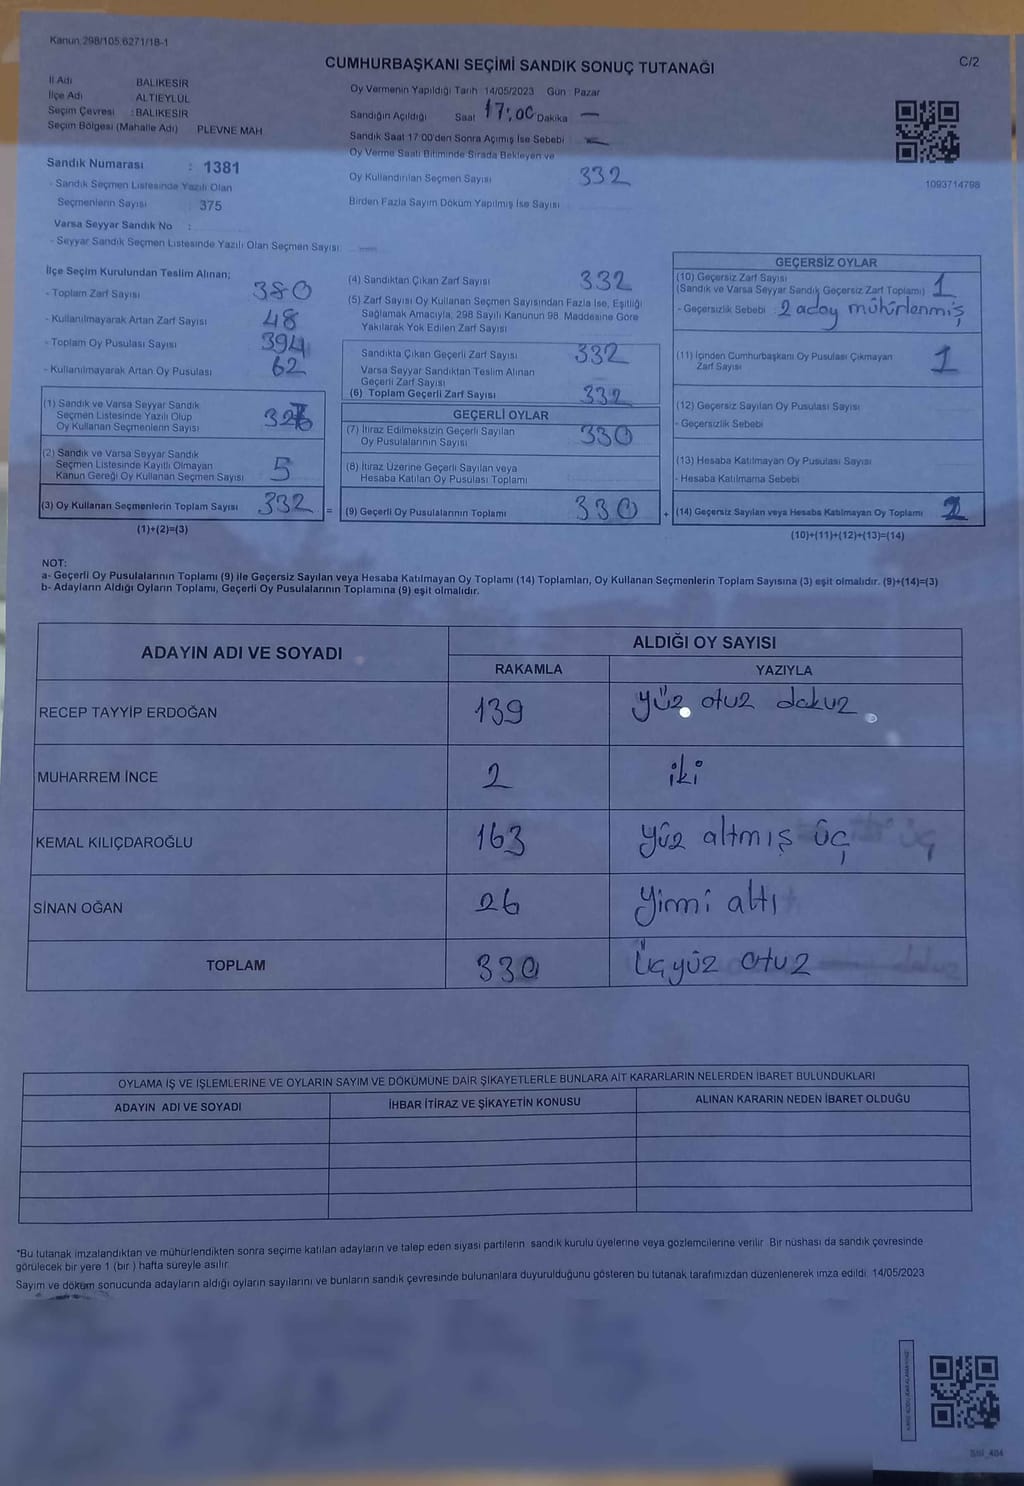 Kanun 298/105 6271/18-1
CUMHURBAŞKANI SEÇİMİ SANDIK SONUÇ TUTANAĞI
C/2
İl Adı BALIKESİR
İlçe Adı ALTIEYLÜL
Seçim Çevresi : BALIKESİR
Seçim Bölgesi (Mahalle Adı) PLEVNE MAH
Oy Vermenin Yapıldığı Tarih 14/05/2023 Gün : Pazar
Sandığın Açıldığı Saat 17:00 Dakika —
Sandık Saat 17 00'den Sonra Açımış İse Sebebi —
Oy Verme Saati Bitiminde Sırada Bekleyen ve
Oy Kullandırılan Seçmen Sayısı 332
Birden Fazla Sayım Döküm Yapılmış İse Sayısı
1093714798
Sandık Numarası : 1381
- Sandık Seçmen Listesinde Yazılı Olan
Seçmenlerin Sayısı 375
Varsa Seyyar Sandık No :
- Seyyar Sandık Seçmen Listesinde Yazılı Olan Seçmen Sayısı: —
İlçe Seçim Kurulundan Teslim Alınan;
- Toplam Zarf Sayısı 380
- Kullanılmayarak Artan Zarf Sayısı 48
- Toplam Oy Pusulası Sayısı 394
- Kullanılmayarak Artan Oy Pusulası 62
(1) Sandık ve Varsa Seyyar Sandık
Seçmen Listesinde Yazılı Olup
Oy Kullanan Seçmenlerin Sayısı
(2) Sandık ve Varsa Seyyar Sandık
Seçmen Listesinde Kayıtlı Olmayan
Kanun Gereği Oy Kullanan Seçmen Sayısı 5
(3) Oy Kullanan Seçmenlerin Toplam Sayısı 332 =
(1)+(2)=(3)
(4) Sandıktan Çıkan Zarf Sayısı 332
(5) Zarf Sayısı Oy Kullanan Seçmen Sayısından Fazla İse, Eşitliği
Sağlamak Amacıyla, 298 Sayılı Kanunun 98. Maddesine Göre
Yakılarak Yok Edilen Zarf Sayısı
Sandıkta Çıkan Geçerli Zarf Sayısı 332
Varsa Seyyar Sandıktan Teslim Alınan
Geçerli Zarf Sayısı
(6) Toplam Geçerli Zarf Sayısı 332
GEÇERLİ OYLAR
(7) İtiraz Edilmeksizin Geçerli Sayılan
Oy Pusulalarının Sayısı 330
(8) İtiraz Üzerine Geçerli Sayılan veya
Hesaba Katılan Oy Pusulası Toplamı
(9) Geçerli Oy Pusulalarının Toplamı 330 +
GEÇERSİZ OYLAR
(10) Geçersiz Zarf Sayısı
(Sandık ve Varsa Seyyar Sandık Geçersiz Zarf Toplamı) 1
- Geçersizlik Sebebi 2 aday mühürlenmiş
(11) İçinden Cumhurbaşkanı Oy Pusulası Çıkmayan
Zarf Sayısı 1
(12) Geçersiz Sayılan Oy Pusulası Sayısı
- Geçersizlik Sebebi
(13) Hesaba Katılmayan Oy Pusulası Sayısı
- Hesaba Katılmama Sebebi
(14) Geçersiz Sayılan veya Hesaba Katılmayan Oy Toplamı 2
(10)+(11)+(12)+(13)=(14)
NOT:
a- Geçerli Oy Pusulalarının Toplamı (9) ile Geçersiz Sayılan veya Hesaba Katılmayan Oy Toplamı (14) Toplamları, Oy Kullanan Seçmenlerin Toplam Sayısına (3) eşit olmalıdır. (9)+(14)=(3)
b- Adayların Aldığı Oyların Toplamı, Geçerli Oy Pusulalarının Toplamına (9) eşit olmalıdır.
ADAYIN ADI VE SOYADI
ALDIĞI OY SAYISI
RAKAMLA YAZIYLA
RECEP TAYYİP ERDOĞAN 139 yüz otuz dokuz
MUHARREM İNCE 2 iki
KEMAL KILIÇDAROĞLU 163 yüz altmış üç
SİNAN OĞAN 26 yirmi altı
TOPLAM 330 üçyüz otuz
OYLAMA İŞ VE İŞLEMLERİNE VE OYLARIN SAYIM VE DÖKÜMÜNE DAİR ŞİKAYETLERLE BUNLARA AİT KARARLARIN NELERDEN İBARET BULUNDUKLARI
ADAYIN ADI VE SOYADI İHBAR İTİRAZ VE ŞİKAYETİN KONUSU ALINAN KARARIN NEDEN İBARET OLDUĞU
*Bu tutanak imzalandıktan ve mühürlendikten sonra seçime katılan adayların ve talep eden siyasi partilerin sandık kurulu üyelerine veya gözlemcilerine verilir. Bir nüshası da sandık çevresinde
görülecek bir yere 1 (bir ) hafta süreyle asılır.
Sayım ve döküm sonucunda adayların aldığı oyların sayılarını ve bunların sandık çevresinde bulunanlara duyurulduğunu gösteren bu tutanak tarafımızdan düzenlenerek imza edildi. 14/05/2023